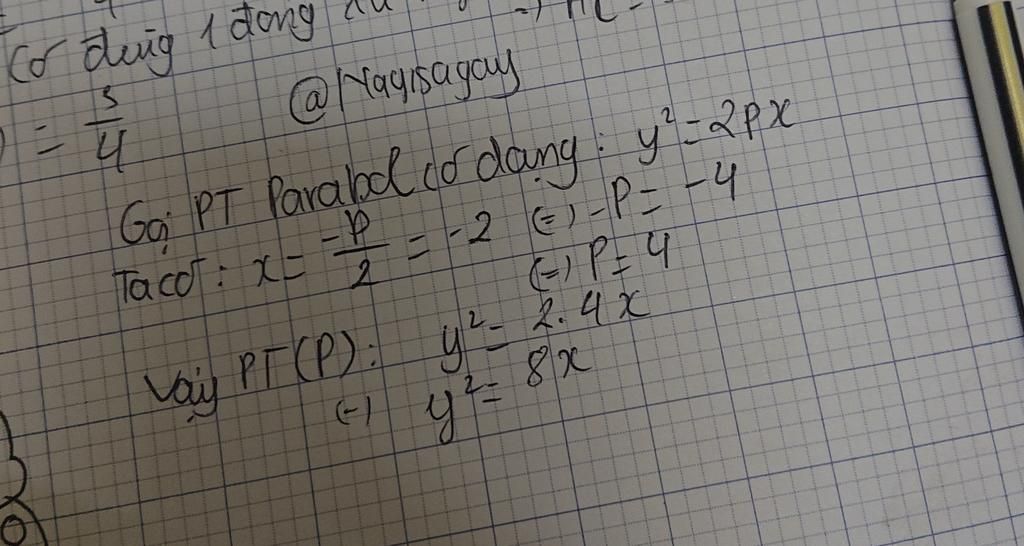 có đúng 1 dạng
= 5/4
@Nagisagay
Gọi PT Parabol có dạng: y² = 2px
Ta có: x = -p/2 = -2 (=) -P = -4
(=) P = 4
Vậy PT(P): y² = 2.4x
(=) y² = 8x